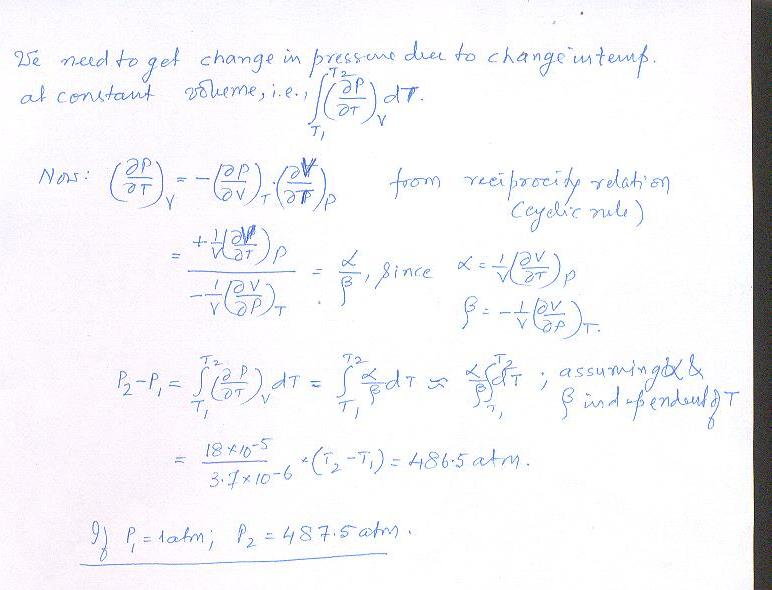 We need to get change in pressure due to change in temp.
at constant volume, i.e., ∫_{T₁}^{T₂} (∂P/∂T)_V dT.
Now: (∂P/∂T)_V = -(∂P/∂V)_T · (∂V/∂T)_P from reciprocity relation
(cyclic rule)
= +1/V (∂V/∂T)_P / -1/V (∂V/∂P)_T = α/β, since α = 1/V (∂V/∂T)_P
β = -1/V (∂V/∂P)_T.
P₂-P₁ = ∫_{T₁}^{T₂} (∂P/∂T)_V dT = ∫_{T₁}^{T₂} α/β dT ≈ α/β ∫_{T₁}^{T₂} dT ; assuming α &
β independent of T
= 18×10⁻⁵ / 3.7×10⁻⁶ × (T₂-T₁) = 486.5 atm.
If P₁ = 1atm; P₂ = 487.5 atm.